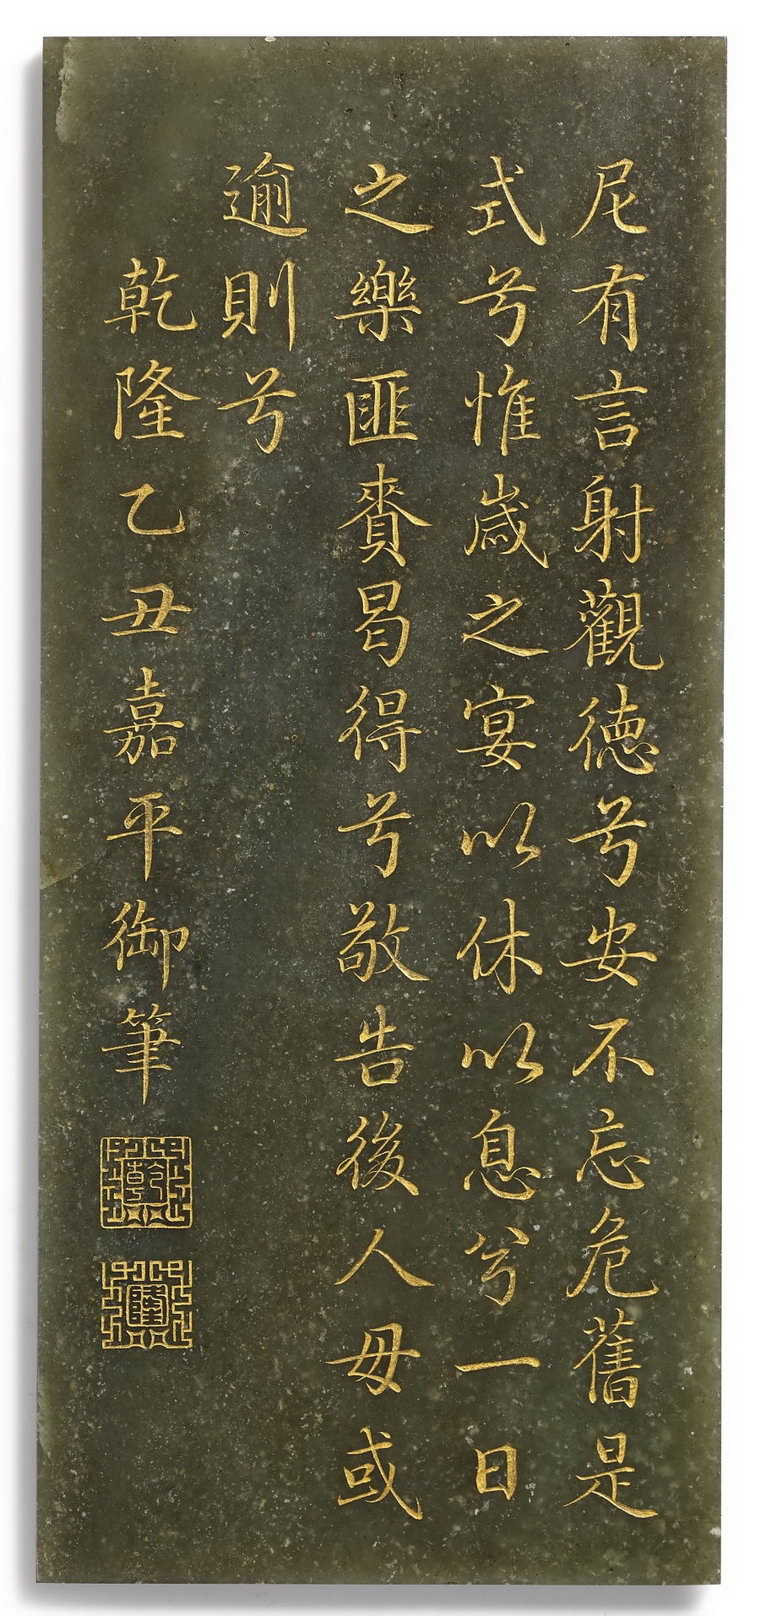 尼有言射觀德兮安不忘危舊是
式兮惟歲之宴以休以息兮一日
之樂匪賚曷得兮敬告後人毋或
逾則兮
乾隆乙丑嘉平御筆
乾
隆